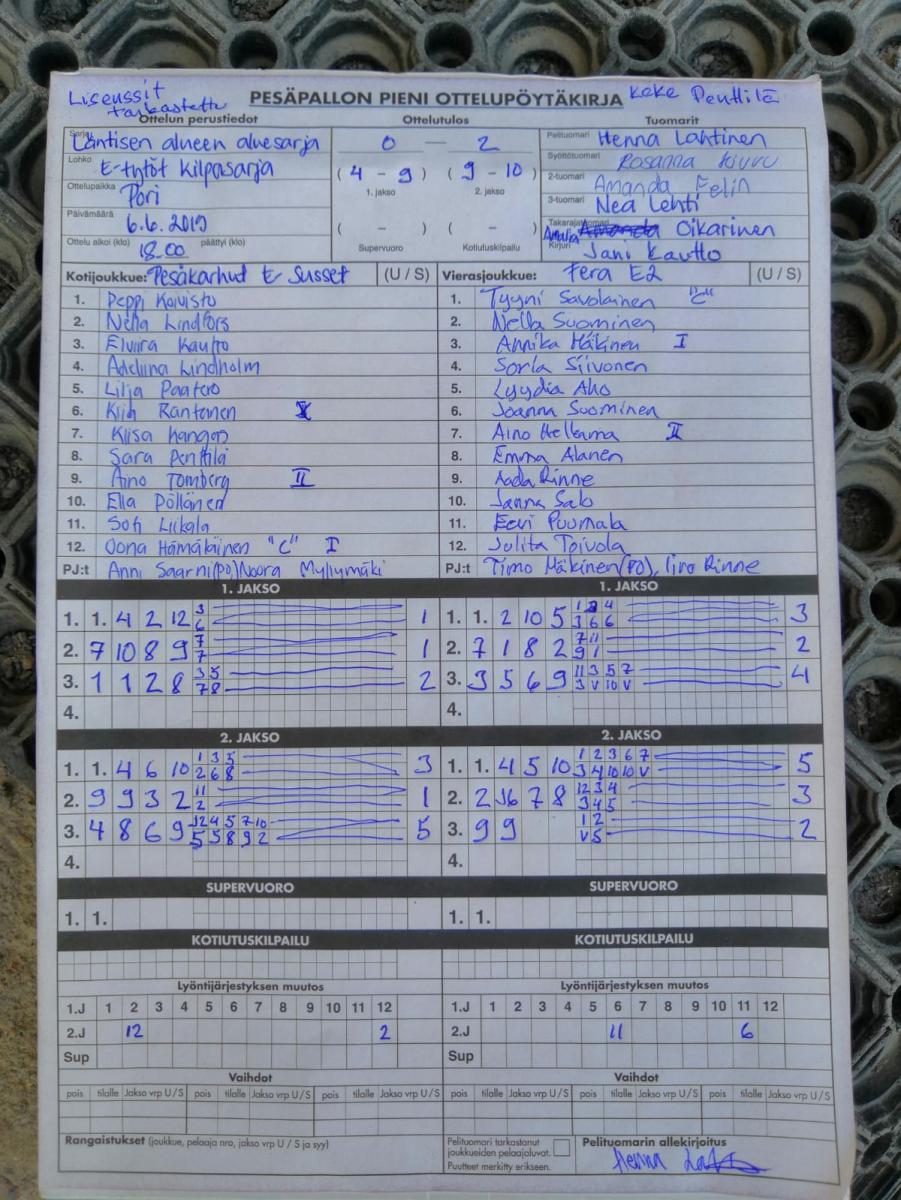 Lisenssit tarkastettu
PESÄPALLON PIENI OTTELUPÖYTÄKIRJA Keke Penttilä
Ottelun perustiedot Ottelutulos Tuomarit
Sarja Läntisen alueen aluesarja 0 — 2 Pelituomari Henna Lahtinen
Lohko E-tytöt kilpasarja (4 – 9) (9 – 10) Syöttötuomari Rosanna
Ottelupaikka Pori 1. jakso 2. jakso 2-tuomari Amanda Felin
Päivämäärä 6.6.2019 ( – ) ( – ) 3-tuomari Nea Lehti
Takarajatuomari Amalia Amanda Oikarinen
Ottelu alkoi (klo) 18.00 päättyi (klo) Supervuoro Kotiutuskilpailu Kirjuri Jani Kautto
Kotijoukkue: Pesäkarhut E-Susset (U / S) Vierasjoukkue: Fera E2 (U / S)
1. Peppi Koivisto 1. Tyyni Savolainen "C"
2. Nella Lindfors 2. Nella Suominen
3. Elviira Kautto 3. Annika Mäkinen I
4. Adeliina Lindholm 4. Sorla Siivonen
5. Lilja Paatero 5. Lyydia Aho
6. Kiih Rantanen 6. Joanna Suominen
7. Kiisa Kangas 7. Aino Hellema II
8. Sara Penttilä 8. Emma Alanen
9. Aino Tomberg II 9. Aada Rinne
10. Ella Pöllänen 10. Janna Salo
11. Sofi Liikala 11. Eevi Puumala
12. Oona Hämäläinen "C" I 12. Julita Toivola
PJ:t Anni Saarni(po) Noora Myllymäki PJ:t Timo Mäkinen(PO), Iiro Rinne
1. JAKSO 1. JAKSO
1. 1. 4 2 12 3 6 1 1. 1. 2 10 5 1 2 4 3 6 6 3
2. 7 10 8 9 7 7 1 2. 7 1 8 2 7 11 9 1 2
3. 1 1 2 8 3 5 7 8 2 3. 3 5 6 9 11 3 5 7 3 V 10 V 4
4. 4.
2. JAKSO 2. JAKSO
1. 1. 4 6 10 1 3 5 2 6 8 3 1. 1. 4 5 10 1 2 3 6 7 3 4 10 10 V 5
2. 9 9 3 2 11 2 1 2. 2 6 7 8 12 3 4 3 4 5 3
3. 4 8 6 9 12 4 5 7 10 5 5 8 9 2 5 3. 9 9 1 2 V 5 2
4. 4.
SUPERVUORO SUPERVUORO
1. 1. 1. 1.
KOTIUTUSKILPAILU KOTIUTUSKILPAILU
Lyöntijärjestyksen muutos Lyöntijärjestyksen muutos
1.J 1 2 3 4 5 6 7 8 9 10 11 12 1.J 1 2 3 4 5 6 7 8 9 10 11 12
2.J 12 2 2.J 11 6
Sup Sup
Vaihdot Vaihdot
pois tilalle Jakso vrp U / S pois tilalle Jakso vrp U / S pois tilalle Jakso vrp U / S pois tilalle Jakso vrp U / S pois tilalle Jakso vrp U / S pois tilalle Jakso vrp U / S
Rangaistukset (joukkue, pelaaja nro, jakso vrp U / S ja syy) Pelituomari tarkastanut Pelituomarin allekirjoitus
joukkueiden pelaajaluvat.
Puutteet merkitty erikseen. Henna